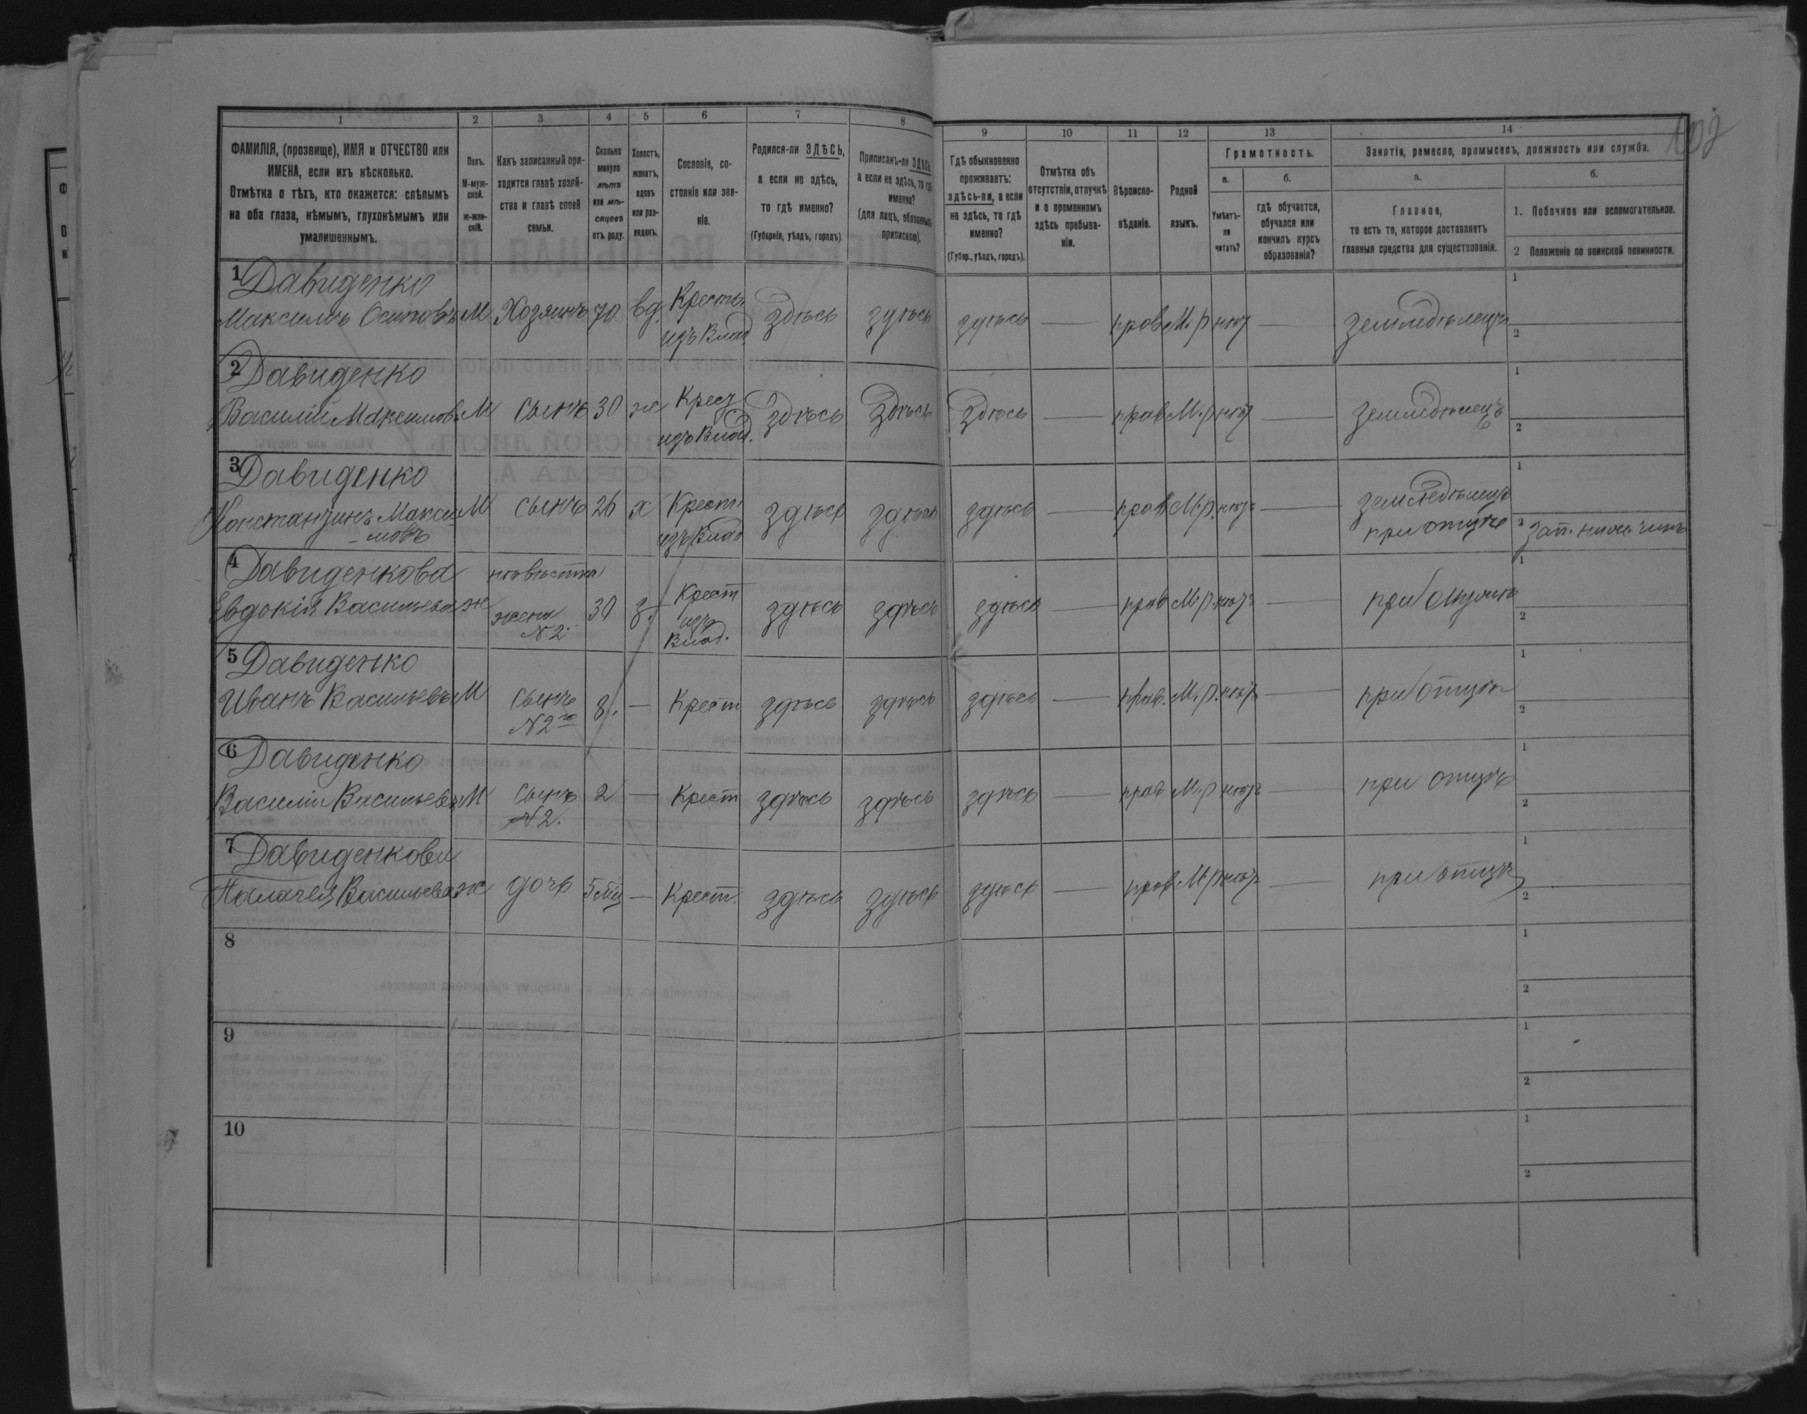 102
1 2 3 4 5 6 7 8 9 10 11 12 13 14
ФАМИЛІЯ, (прозвище), ИМЯ и ОТЧЕСТВО или
ИМЕНА, если ихъ нѣсколько.
Отмѣтка о тѣхъ, кто окажется: слѣпымъ
на оба глаза, нѣмымъ, глухонѣмымъ или
умалишеннымъ.
Полъ.
М-муж-
ской.
ж-жен-
скій.
Какъ записанный при-
ходится главѣ хозяй-
ства и главѣ своей
семьи.
Сколько
минуло
лѣтъ
или мѣ-
сяцевъ
отъ роду.
Холостъ,
женатъ,
вдовъ
или раз-
веденъ.
Сословіе, со-
стояніе или зва-
ніе.
Родился-ли ЗДѢСЬ,
а если не здѣсь,
то гдѣ именно?
(Губернія, уѣздъ, городъ).
Приписанъ-ли ЗДѢСЬ,
а если не здѣсь, то гдѣ
именно?
(для лицъ, обязанныхъ
припиской).
Гдѣ обыкновенно
проживаетъ:
здѣсь-ли, а если
не здѣсь, то гдѣ
именно?
(Губер., уѣздъ, городъ).
Отмѣтка объ
отсутствіи, отлучкѣ
и о временномъ
здѣсь пребыва-
ніи.
Вѣроиспо-
вѣданіе.
Родной
языкъ.
Грамотность.
а.
Умѣетъ-
ли
читать?
б.
гдѣ обучается,
обучался или
кончилъ курсъ
образованія?
Занятія, ремесло, промыселъ, должность или служба.
а.
Главное,
то есть то, которое доставляетъ
главныя средства для существованія.
б.
1. Побочное или вспомогательное.
2 Положеніе по воинской повинности.
1 Давиденко
Максимъ Осиповъ М Хозяинъ 70 вд. Крестьян изъ Влад. Здѣсь здѣсь здѣсь — прав М.р нѣтъ — земледѣлецъ
1
2
2 Давиденко
Василій Максимов. М сынъ 30 ж Крест изъ Влад. Здѣсь Здѣсь Здѣсь — прав М.р нѣтъ — земледѣлецъ
1
2
3 Давиденко
Константинъ Макси-
мовъ М сынъ 26 х Крест изъ Влад здѣсь здѣсь здѣсь — прав М.р. нѣтъ — земледѣлецъ
при отцѣ
1
2 Зап. нижн. чинъ
4 Давиденкова
Евдокія Васильева ж невѣстка
жена
N 2. 30 з. Крест
изъ
Влад. здѣсь здѣсь здѣсь — прав М.р. нѣтъ —
1
2
5 Давиденко
Иванъ Васильевъ М сынъ
N 2го 8. — Крест здѣсь здѣсь здѣсь — прав. М.р. нѣтъ — при отцѣ
1
2
6 Давиденко
Василій Васильевъ М сынъ
N 2. 2 — Крест здѣсь здѣсь здѣсь — прав М.р нѣтъ — при отцѣ
1
2
7 Давиденкова
Палагея Васильева ж дочь 5 мѣ — Крест. здѣсь здѣсь здѣсь — прав М.р нѣтъ — при отцѣ
1
2
8
1
2
9
1
2
10
1
2